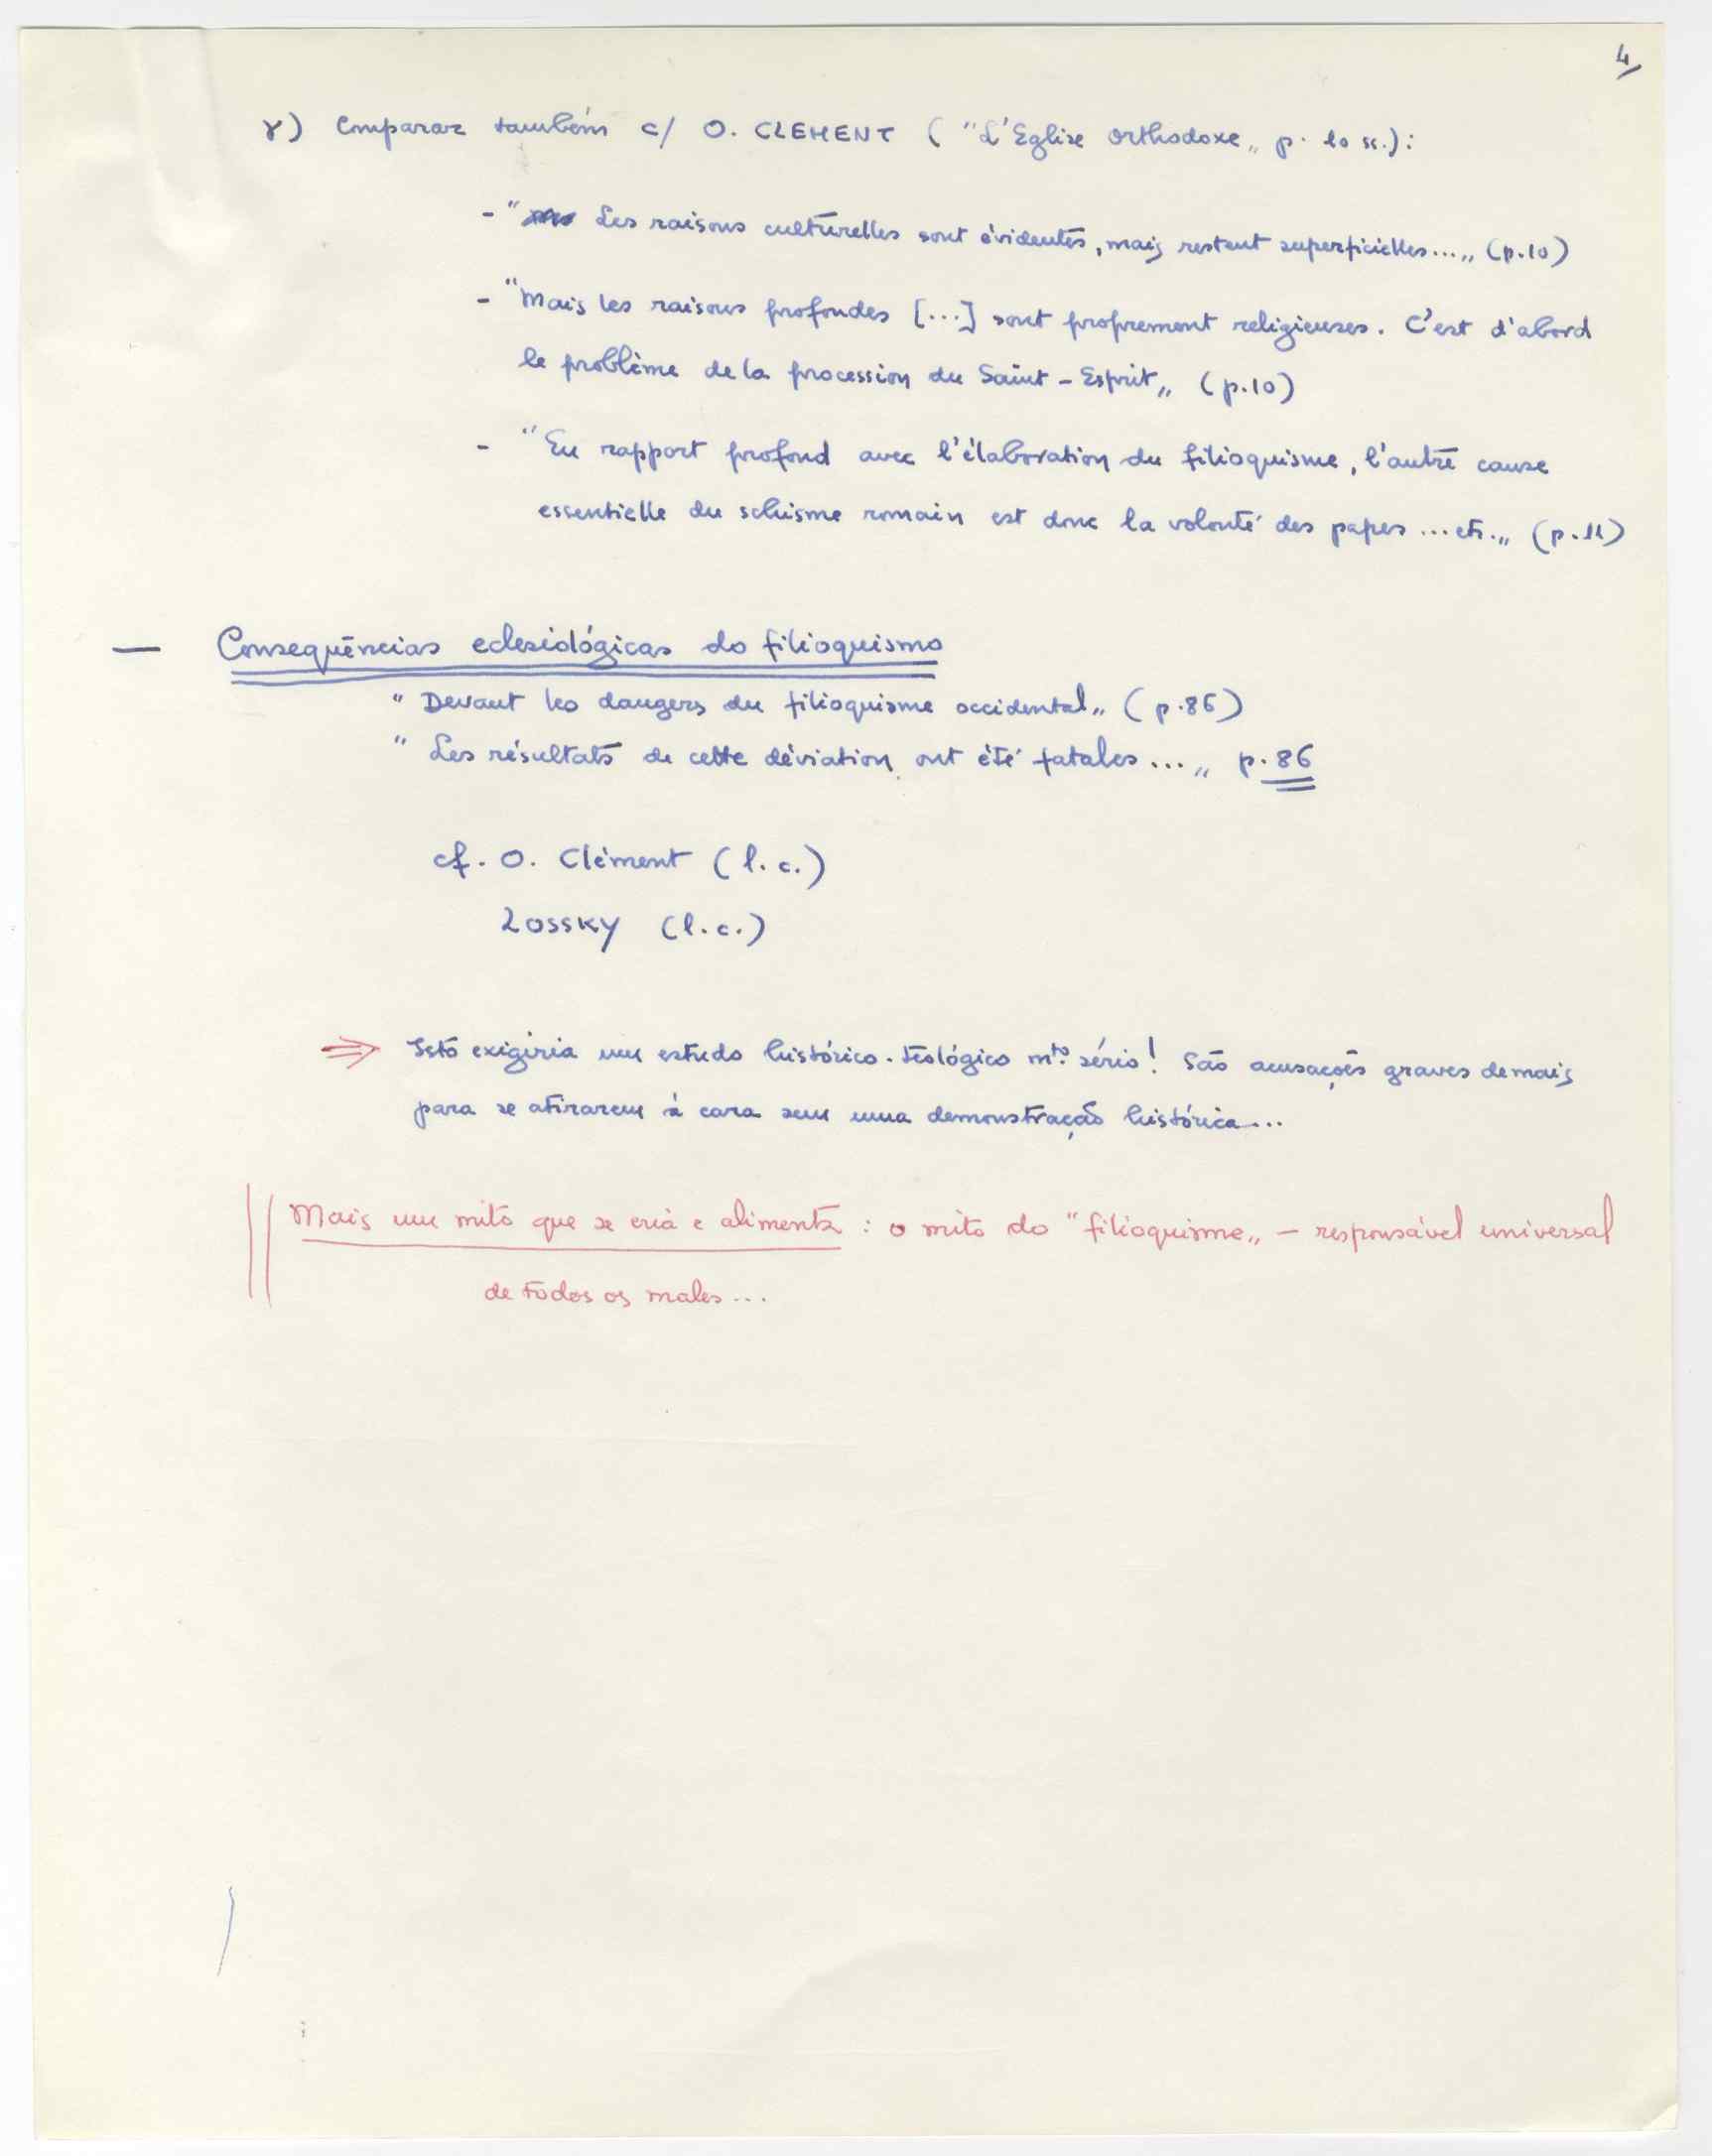 4
γ) Comparar também c/ O. CLEMENT ( "L'Eglise Orthodoxe„ p. 10 ss.):
- " Les raisons culturelles sont évidentes, mais restent superficielles...„ (p.10)
- "Mais les raisons profondes [...] sont proprement religieuses. C'est d'abord
le problème de la procession du Saint-Esprit„ (p.10)
- "En rapport profond avec l'élaboration du filioquisme, l'autre cause
essentielle du schisme romain est donc la volonté des papes ... etc.„ (p.11)
— Consequências eclesiológicas do filioquismo
" Devant les dangers du filioquisme occidental„ (p.86)
" Les résultats de cette déviation ont été fatales...„ p.86
cf. O. Clément (l.c.)
LOSSKY (l.c.)
⇒ Isto exigiria um estudo histórico-teológico mto. sério! São acusações graves demais
para se atirarem à cara sem uma demonstração histórica...
Mais um mito que se cria e alimenta : o mito do "filioquisme„ — responsável universal
de todos os males...